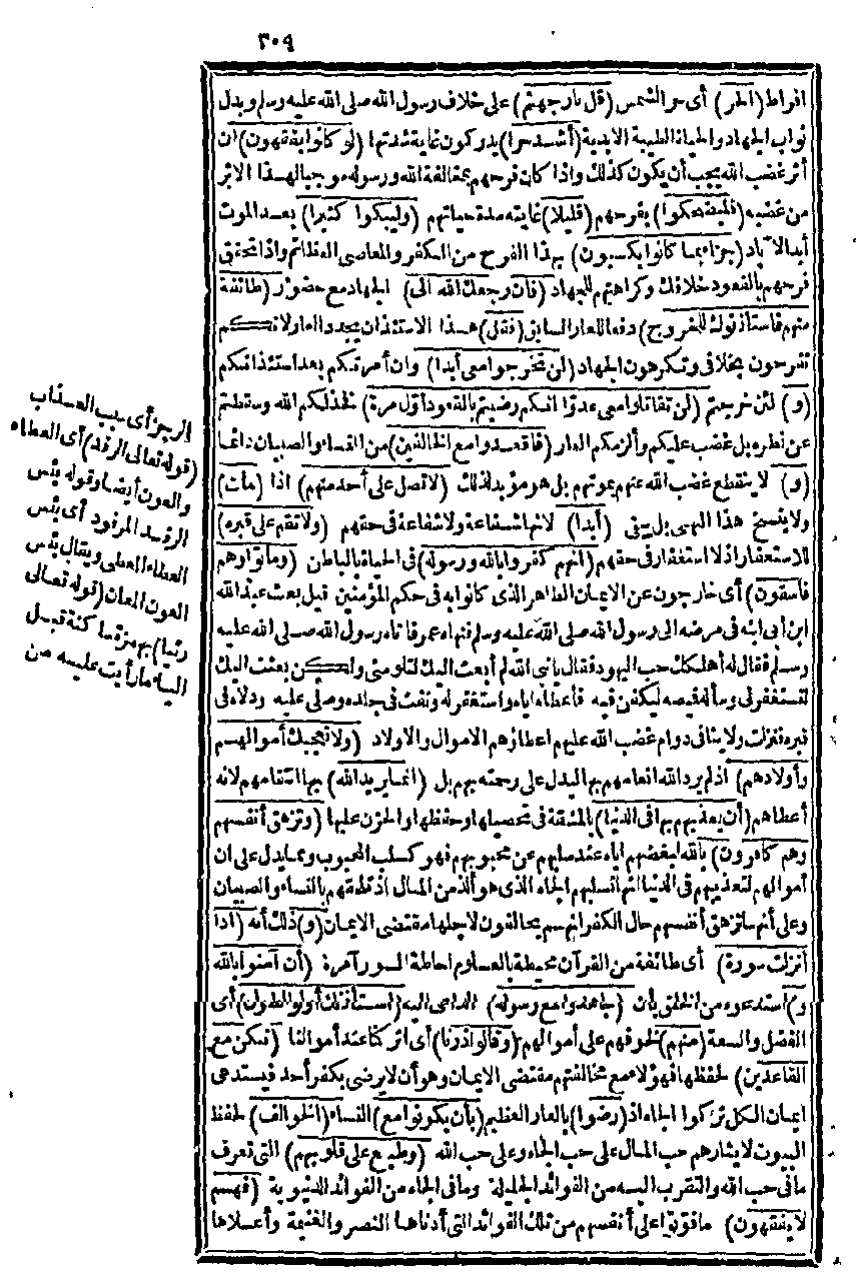 ٣٠٩
افراط (الحر) أى حر الشمس (قل نار جهنم) على خلاف رسول الله صلى الله عليه وسلم وبدل
ثواب الجهاد والحياة الطيبة الابدية (أشد حرا) يدركون غاية شدتها (لو كانوا يفقهون) ان
أثر غضب الله يجب أن يكون كذلك واذا كان فرحهم بمخالفة الله ورسوله موجبا لهذا الاثر
من غضبه (فليضحكوا) بفرحهم (قليلا) غايته مدة حياتهم (وليبكوا كثيرا) بعد الموت
أبد الآباد (جزاء بما كانوا يكسبون) بهذا الفرح من الكفر والمعاصى العظائم واذا تحقق
فرحهم بالقعود خلافك وكراهتهم للجهاد (فان رجعك الله الى) الجهاد مع حضور (طائفة
منهم فاستأذنوك للخروج) دفعا للعار السابق (فقل) هذا الاستئذان يجدد العار لانكم
تفرحون بخلافى وتكرهون الجهاد (لن تخرجوا معى أبدا) وان أمرتكم بعد استئذانكم
(و) لئن خرجتم (لن تقاتلوا معى عدوا انكم رضيتم بالقعود أول مرة) فخذلكم الله وسقطتم
عن نظره بل غضب عليكم وألزمكم العار (فاقعدوا مع الخالفين) من النساء والصبيان دائما
(و) لا ينقطع غضب الله عنهم بموتهم بل هو مؤبد لذلك (لا تصل على أحد منهم) اذا (مات)
ولا ينسخ هذا النهى بل يبقى (أبدا) لانها شفاعة ولا شفاعة فى حقهم (ولا تقم على قبره)
للاستغفار اذ لا استغفار فى حقهم (انهم كفروا بالله ورسوله) فى الحياة بالباطن (وماتوا وهم
فاسقون) أى خارجون عن الايمان الظاهر الذى كانوا به فى حكم المؤمنين قيل بعث عبد الله
ابن أبى ابنه فى مرضه الى رسول الله صلى الله عليه وسلم فنهاه عمر فاتاه رسول الله صلى الله عليه
وسلم فقال له أهلكك حب اليهود فقال يا نبى الله لم أبعث اليك لتلومنى ولكن بعثت اليك
لتستغفر لى وسأله قميصه ليكفن فيه فأعطاه اياه واستغفر له ونفث فى جلده وصلى عليه ودلاه فى
قبره فنزلت ولا ينافى دوام غضب الله عليهم اعطاؤهم الاموال والاولاد (ولا تعجبك أموالهم
وأولادهم) اذ لم يرد الله انعامهم بها ليدل على رحمته بهم بل (انما يريد الله) بها انتقامهم لانه
أعطاهم (أن يعذبهم بها فى الدنيا) بالمشقة فى تحصيلها وحفظها والحزن عليها (وتزهق أنفسهم
وهم كافرون) بالله لبغضهم اياه عند سلبهم عن محبوبهم فهو كسلب المحبوب ومما يدل على ان
أموالهم لتعذيبهم فى الدنيا انها تسلبهم الجاه الذى هو ألذ من المال اذ تلحقهم بالنساء والصبيان
وعلى أنها تزهق أنفسهم حال الكفر انهم يخالفون لاجلها مقتضى الايمان (و) ذلك أنه (اذا
أنزلت سورة) أى طائفة من القرآن محيطة بالعلوم احاطة السور آمرة (أن آمنوا بالله
و) استدعوه من الخلق بأن (جاهدوا مع رسوله) الداعى اليه (استأذنك أولوا الطول) أى
الفضل والسعة (منهم) لخوفهم على أموالهم (وقالوا ذرنا) أى اتركنا عند أموالنا (نكن مع
القاعدين) لحفظها فهؤلاء مع مخالفتهم مقتضى الايمان وهو أن لا يرضى بكفر أحد فيستدعى
ايمان الكل تركوا الجاه اذ (رضوا) بالعار العظيم (بأن يكونوا مع) النساء (الخوالف) لحفظ
البيوت لايثارهم حب المال على حب الجاه وعلى حب الله (وطبع على قلوبهم) التى تعرف
ما فى حب الله والتقرب اليه من الفوائد الجليلة وما فى الجاه من الفوائد الدنيوية (فهم
لا يفقهون) ما فوتوا على أنفسهم من تلك الفوائد التى أدناها النصر والغنيمة وأعلاها
الرجز أى سبب العذاب
(قوله تعالى الرفد) أى العطاء
والعون أيضا وقوله بئس
الرفد المرفود أى بئس
العطاء المعطى ويقال بئس
العون المعان (قوله تعالى
رئيا) بهمزة ساكنة قبل
الياء ما رأيت عليه من